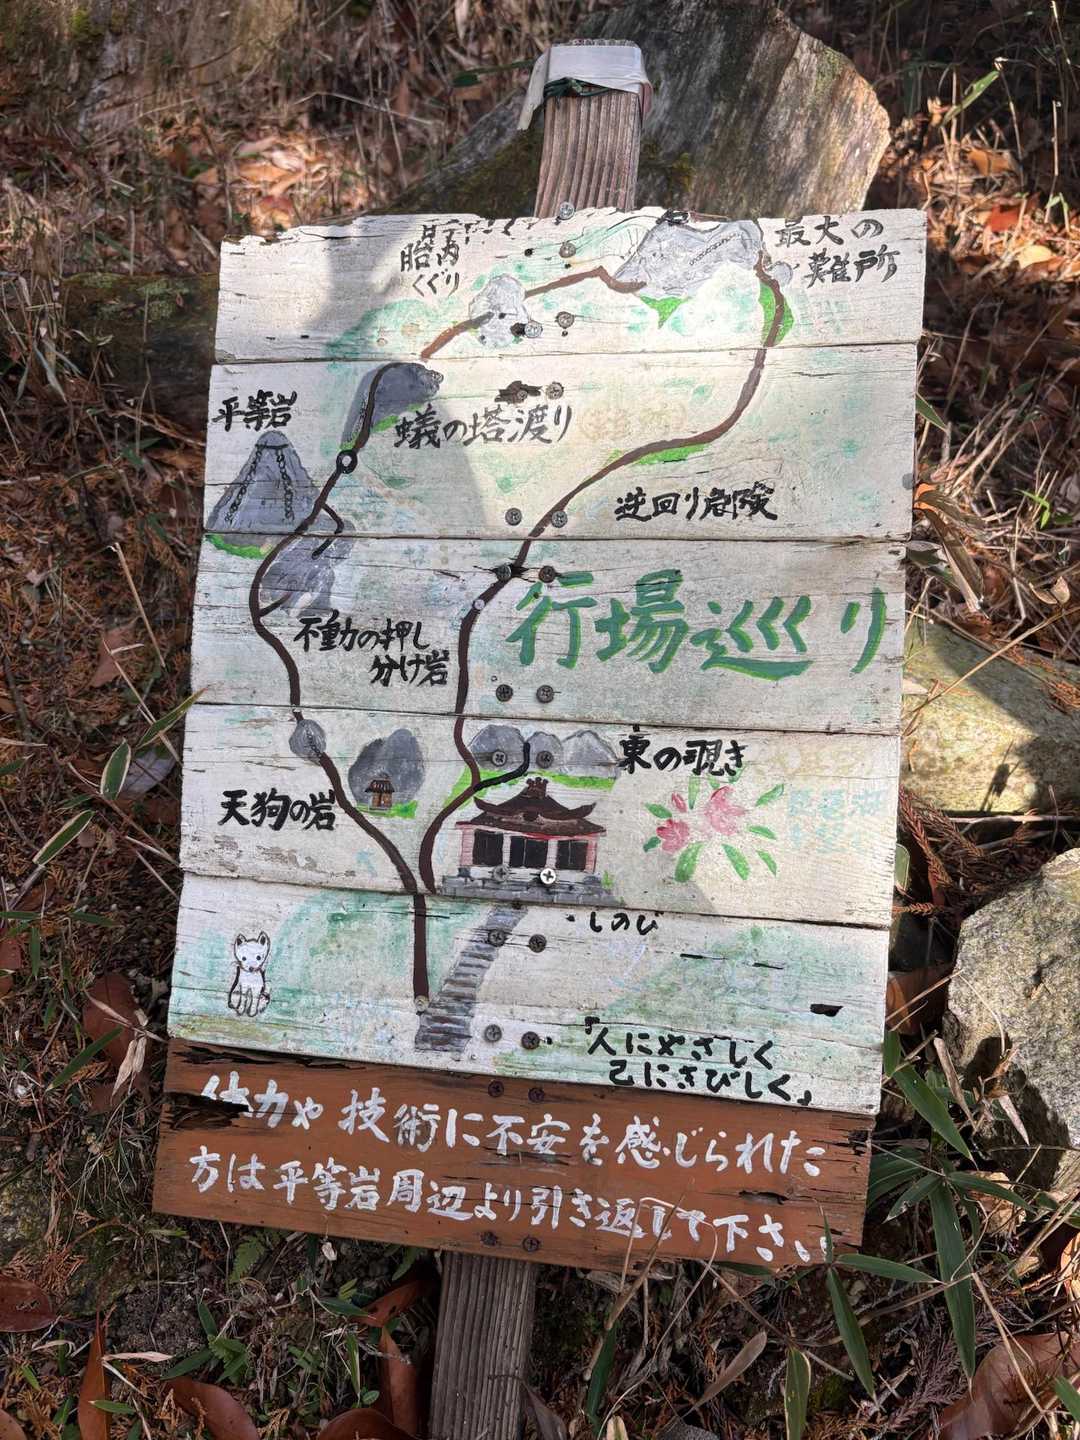 胎内
くぐり
最大の
難所
平等岩
蟻の塔渡り
逆回り危険
行場巡り
不動の押し
分け岩
東の覗き
天狗の岩
・しのび
「人にやさしく
己にきびしく」
体力や技術に不安を感じられた
方は平等岩周辺より引き返して下さい